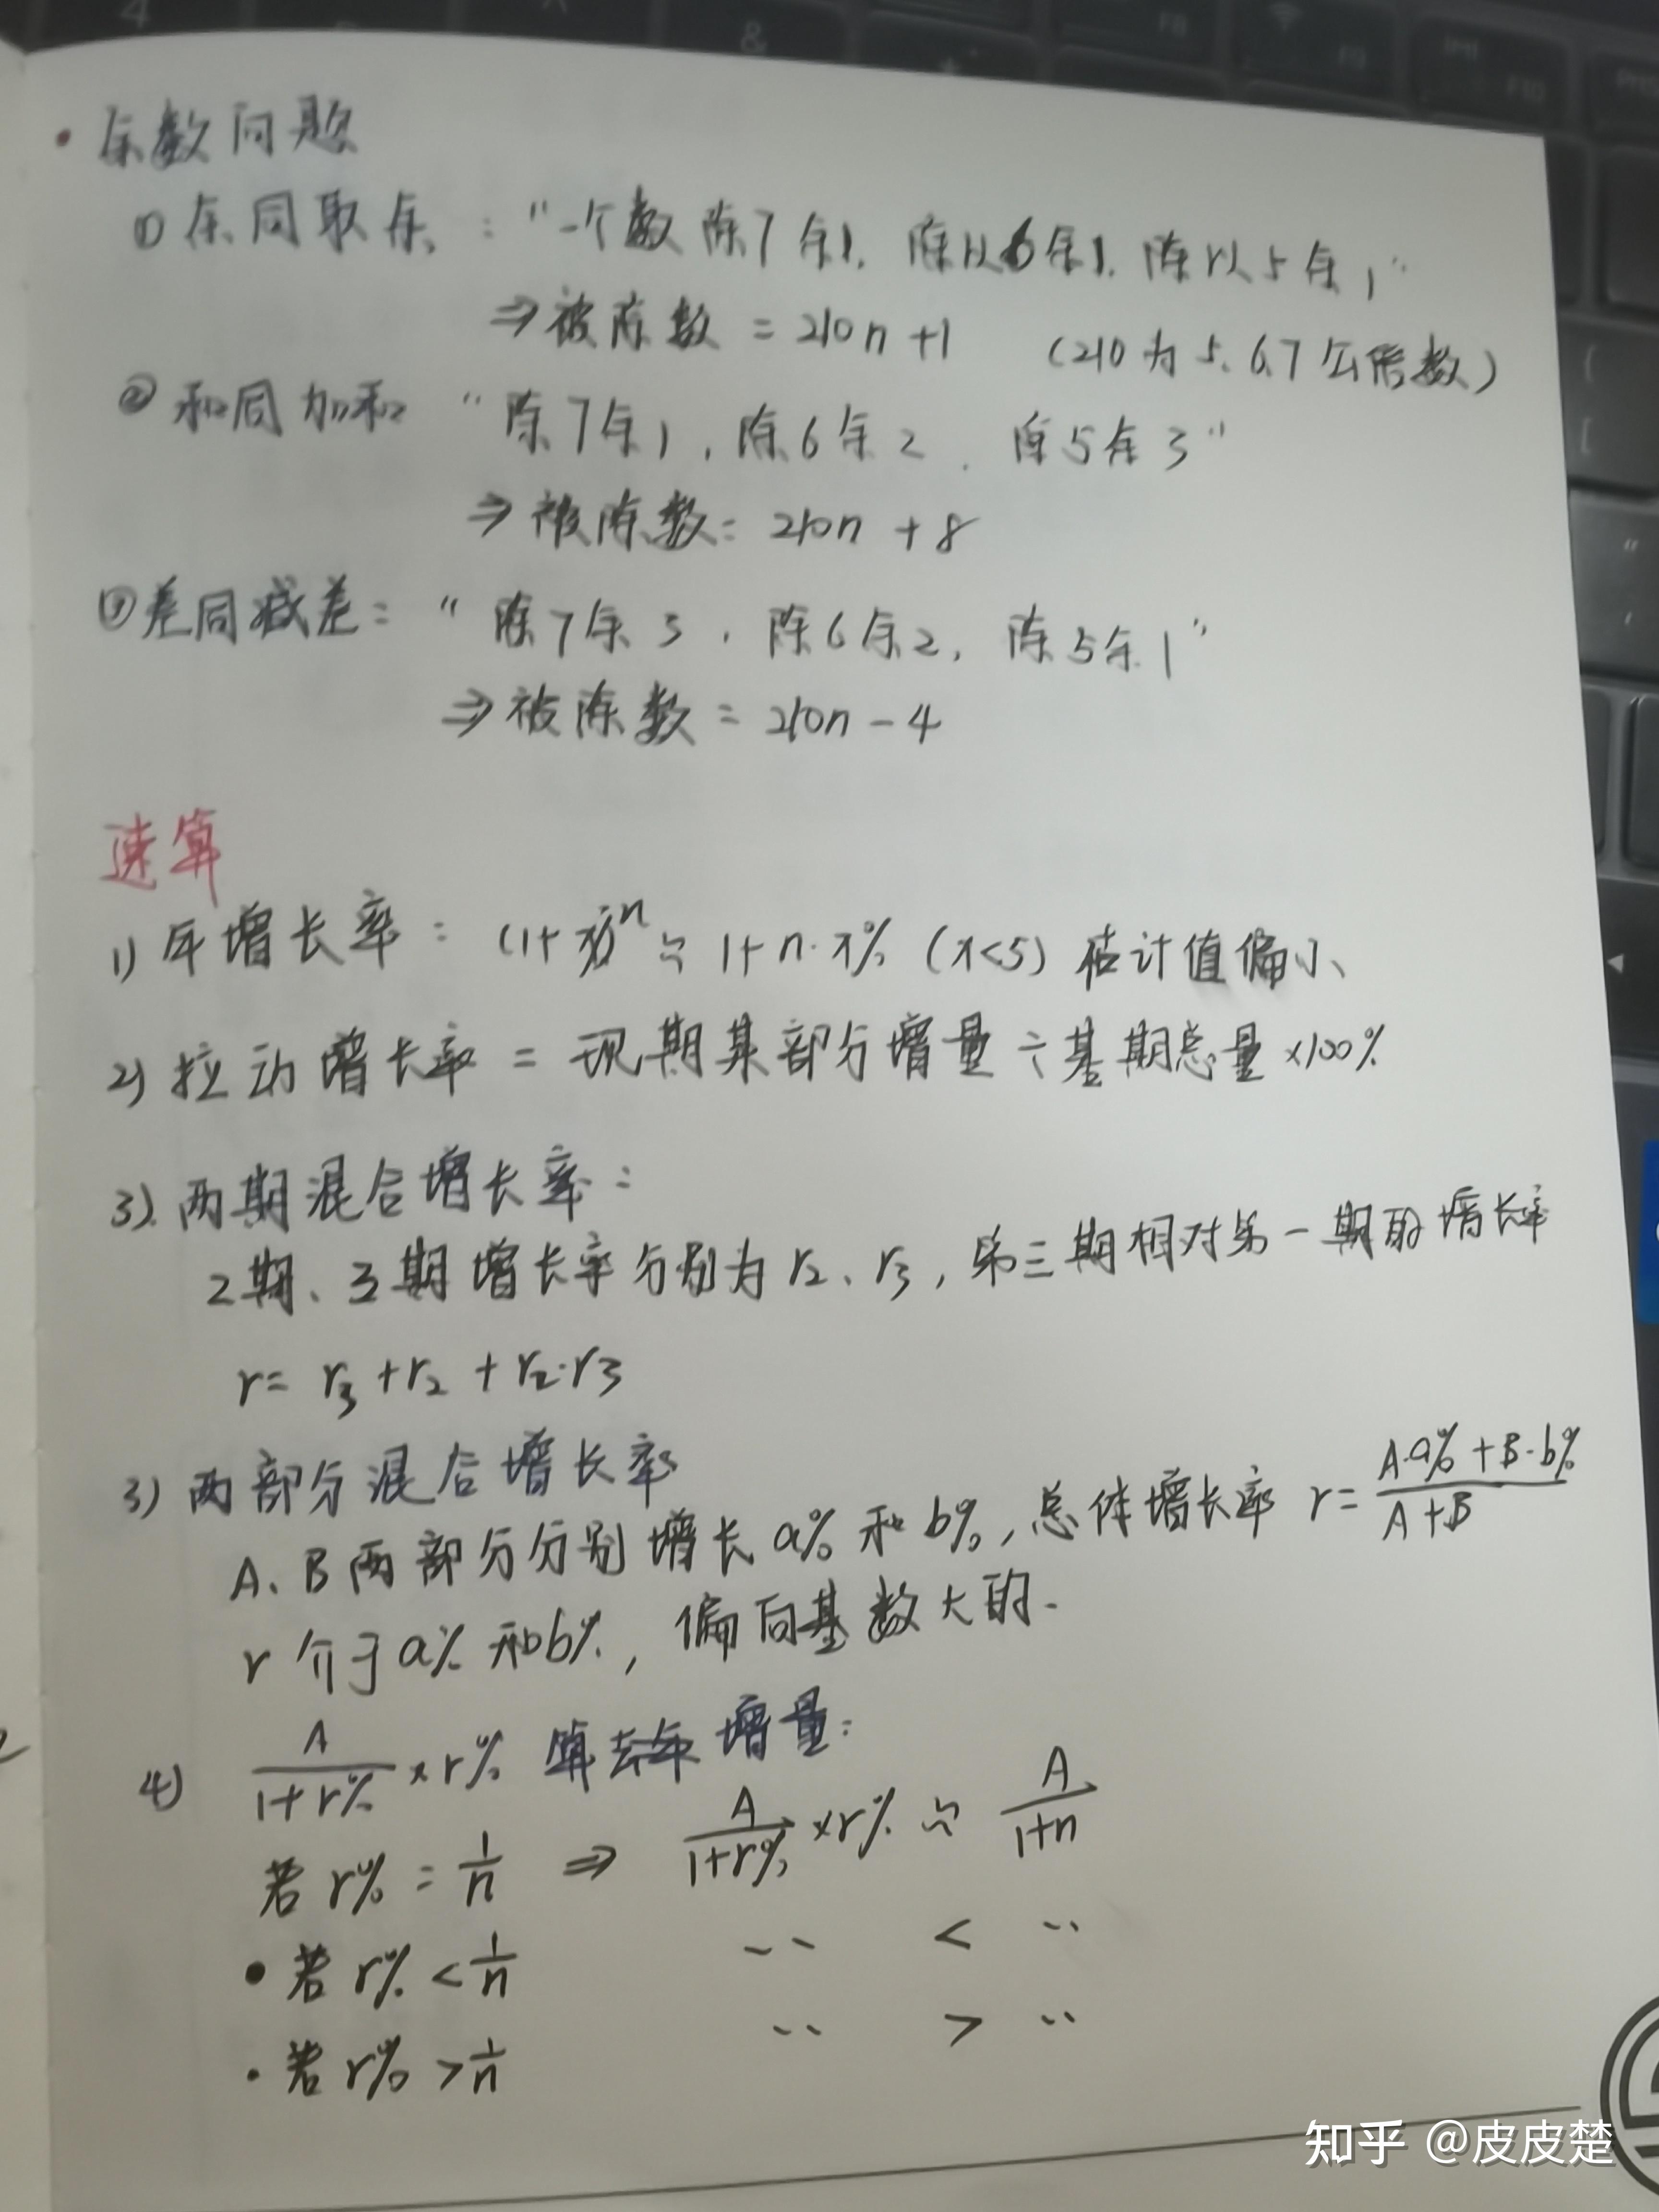 ·余数问题
①余同取余:"一个数除7余1,除以6余1,除以5余1"
⇒被除数=210n+1 (210为5.6.7公倍数)
②和同加和 "除7余1,除6余2,除5余3"
⇒被除数=210n+8
③差同减差:"除7余3,除6余2,除5余1"
⇒被除数=210n-4
速算
1)年增长率:(1+x%)ⁿ≈1+n·x% (x<5) 估计值偏小
2)拉动增长率=现期某部分增量÷基期总量×100%
3).两期混合增长率:
2期、3期增长率分别为r₂、r₃,第三期相对第一期的增长率
r=r₃+r₂+r₂·r₃
3)两部分混合增长率
A、B两部分分别增长a%和b%,总体增长率 r=(A·a%+B·b%)/(A+B)
r介于a%和b%,偏向基数大的.
4) A/(1+r%)×r% 算去年增量:
若r%=1/n ⇒ A/(1+r%)×r%≈A/(1+n)
·若r%<1/n -- < ··
·若r%>1/n -- > ··
知乎 @皮皮楚